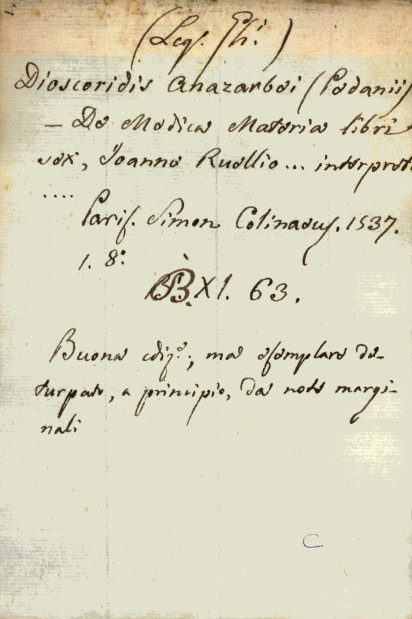 (Leg. Ghi.)
Dioscoridis Anazarbei (Pedanii)
– De Medica Materia libri
sex, Joanne Ruellio ... interprete
....
Paris. Simon Colinaeus. 1537.
1. 8.°
B. XI. 63.
Buona ediz.e, ma esemplare de-
turpato, a principio, da note margi-
nali
C